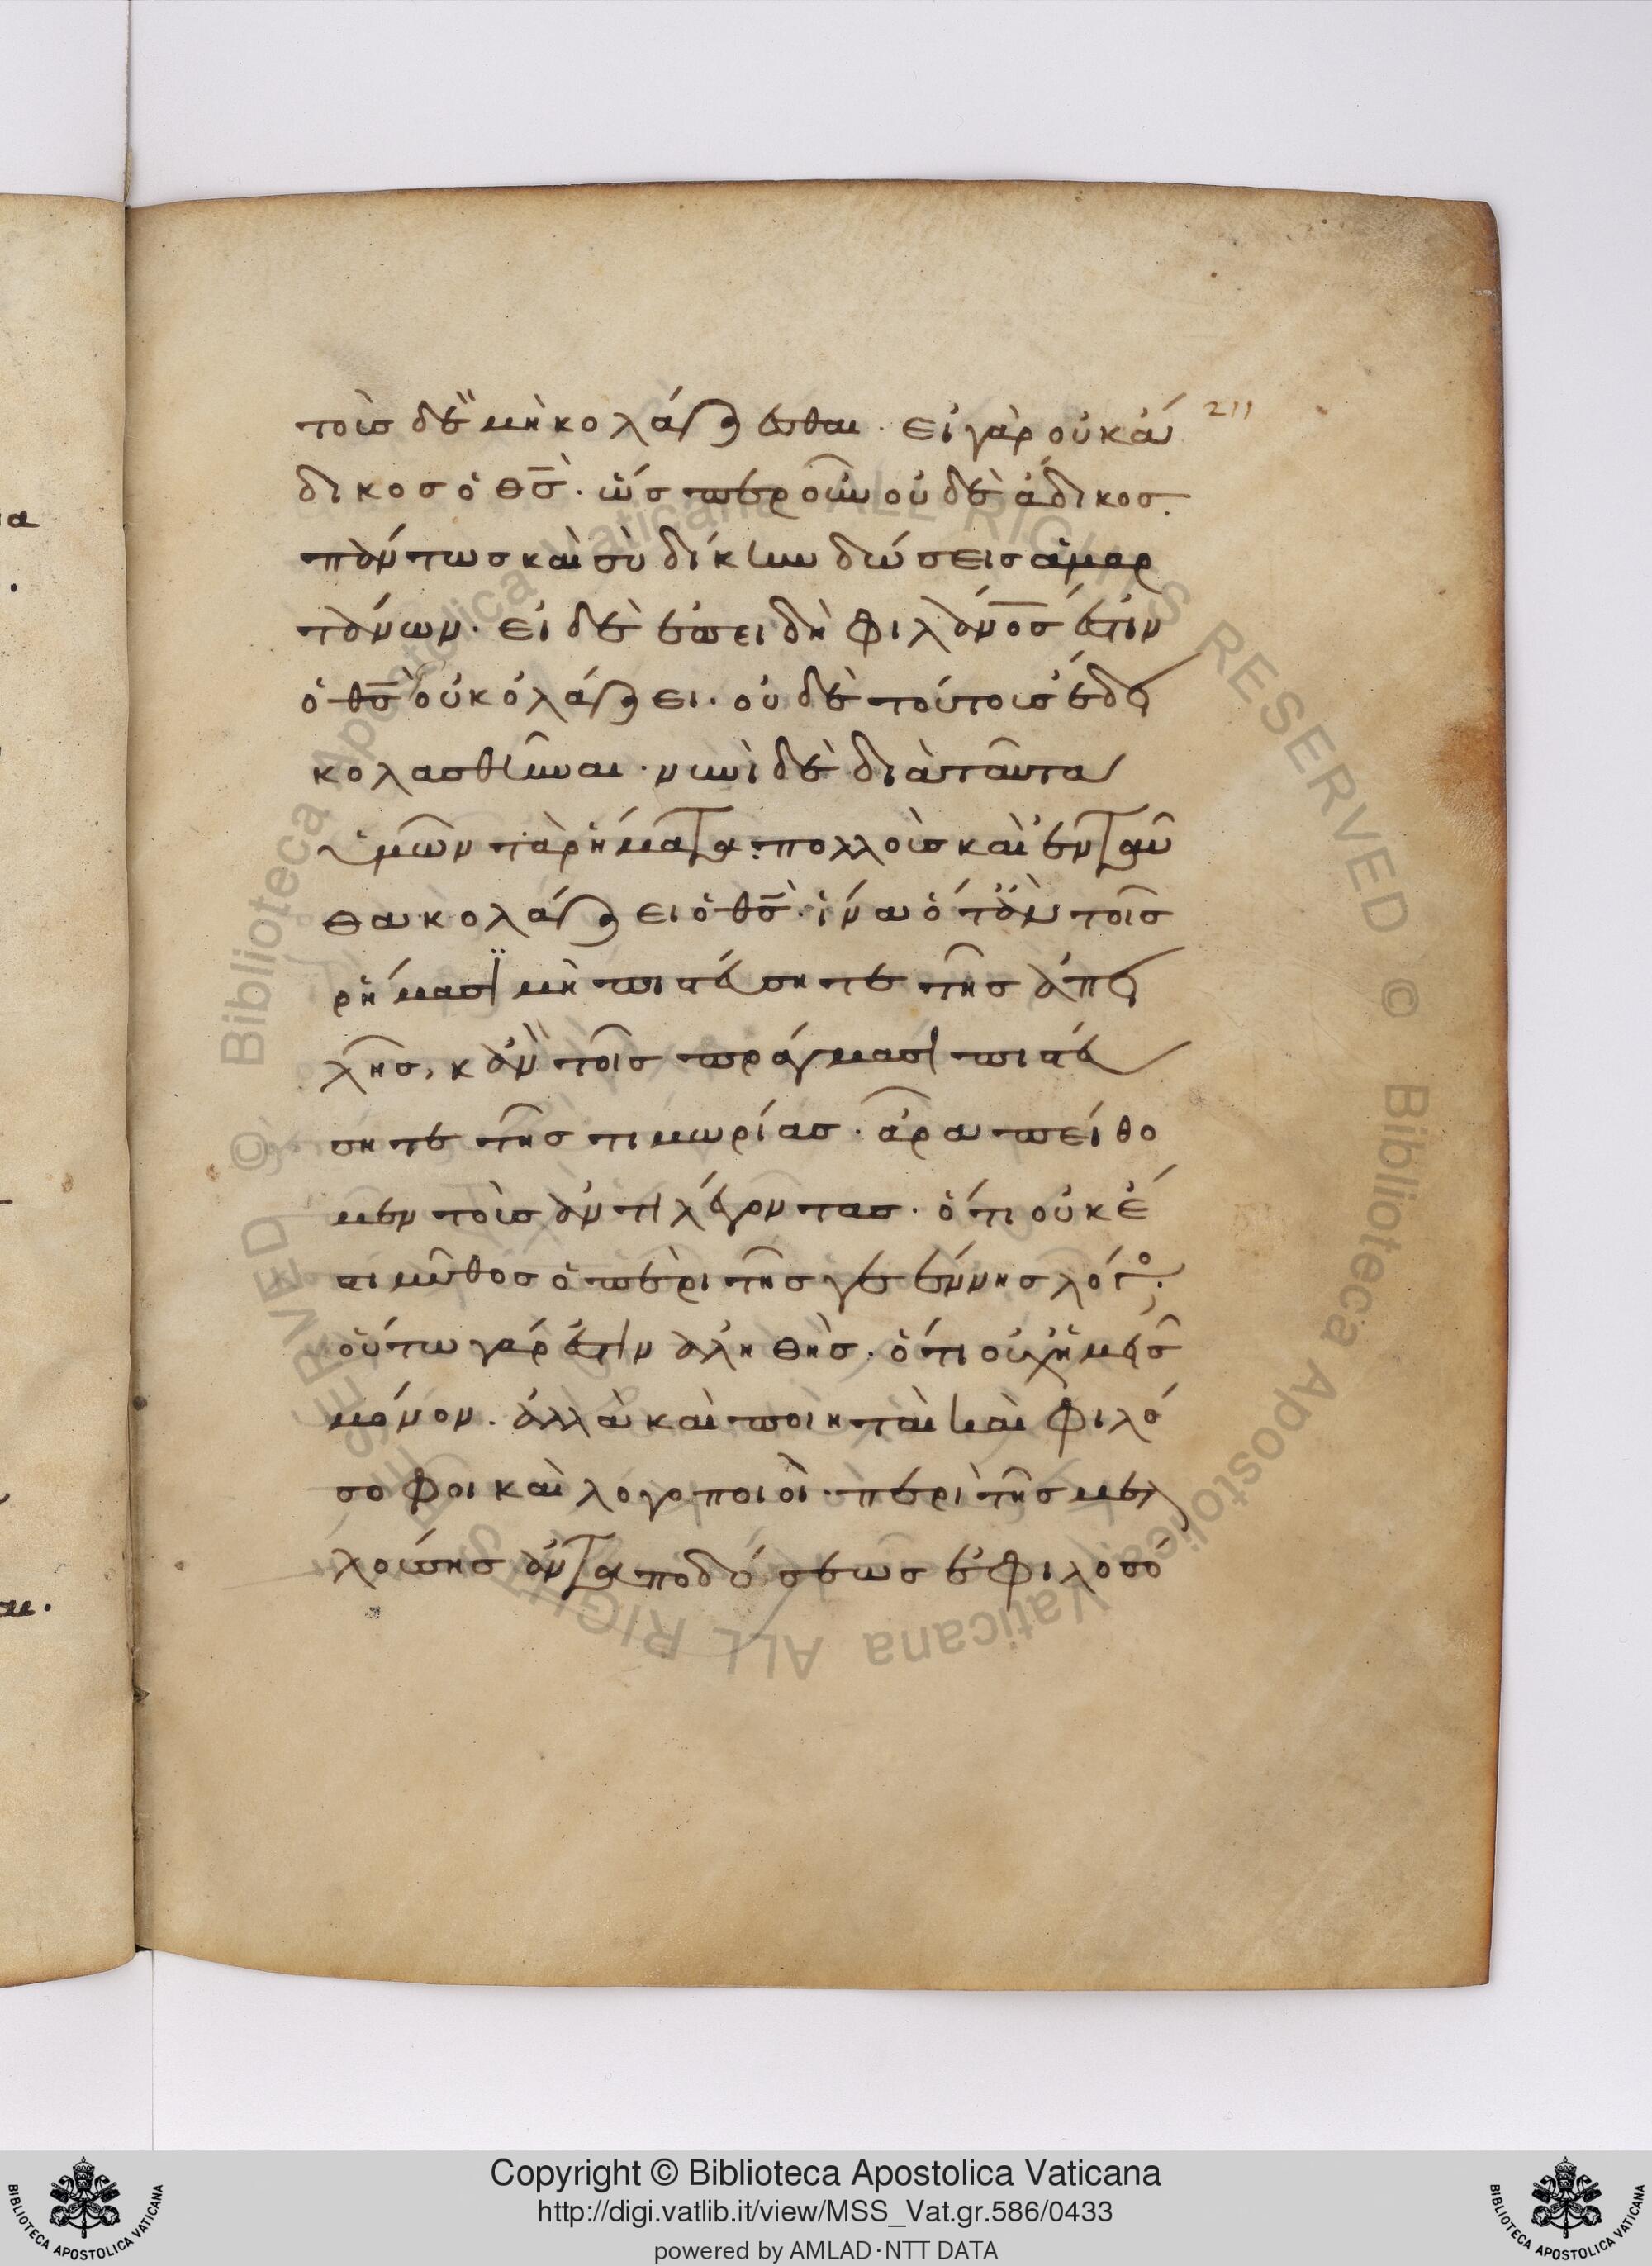 τοῖσ δὲ μὴ κολάζεσθαι. εἰ γὰρ οὐκ ἄ 211
δικοσ ὁ θ̅σ̅. ὥσπερ οὖν οὐδὲ ἄδικοσ.
πάντωσ καὶ σὺ δίκην δώσεισ ἁμαρ
τάνων. εἰ δὲ ἐπειδὴ φιλάνο̅σ̅ ἐστιν
ὁ θ̅σ̅ οὐ κολάζει. οὐδὲ τούτουσ ἔδει
κολασθῆναι. νυνὶ δὲ διὰ ταῦτα
ὑμῶν τὰ ῥήματα. πολλοὺσ καὶ ἐνταῦ
θα κολάζει ὁ θ̅σ̅. ἵνα ὅταν τοῖσ
ῥήμασϊ μὴ πιστεύσητε τῆσ ἀπει
λῆσ, κἂν τοῖσ πράγμασι πιστεύ
σητε τῆσ τιμωρίασ. ἆρα πείθο
μεν τοὺσ ἀντιλέγοντασ. ὅτι οὐκ ἔ
στι μῦθοσ ὁ περὶ τῆσ γεέννησ λόγο.
οὕτω γάρ ἐστιν ἀληθὴσ. ὅτι οὐχ ἡμεῖσ
μόνον. ἀλλὰ καὶ ποιηταὶ καὶ φιλό
σοφοι καὶ λογοποιοὶ. περὶ τῆσ μελ
λούσησ ἀνταποδόσεωσ ἐφιλοσό
Copyright © Biblioteca Apostolica Vaticana
http://digi.vatlib.it/view/MSS_Vat.gr.586/0433
powered by AMLAD·NTT DATA
BIBLIOTECA APOSTOLICA VATICANA
BIBLIOTECA APOSTOLICA VATICANA
© Biblioteca Apostolica Vaticana ALL RIGHTS RESERVED © Biblioteca Apostolica Vaticana ALL RIGHTS RESERVED